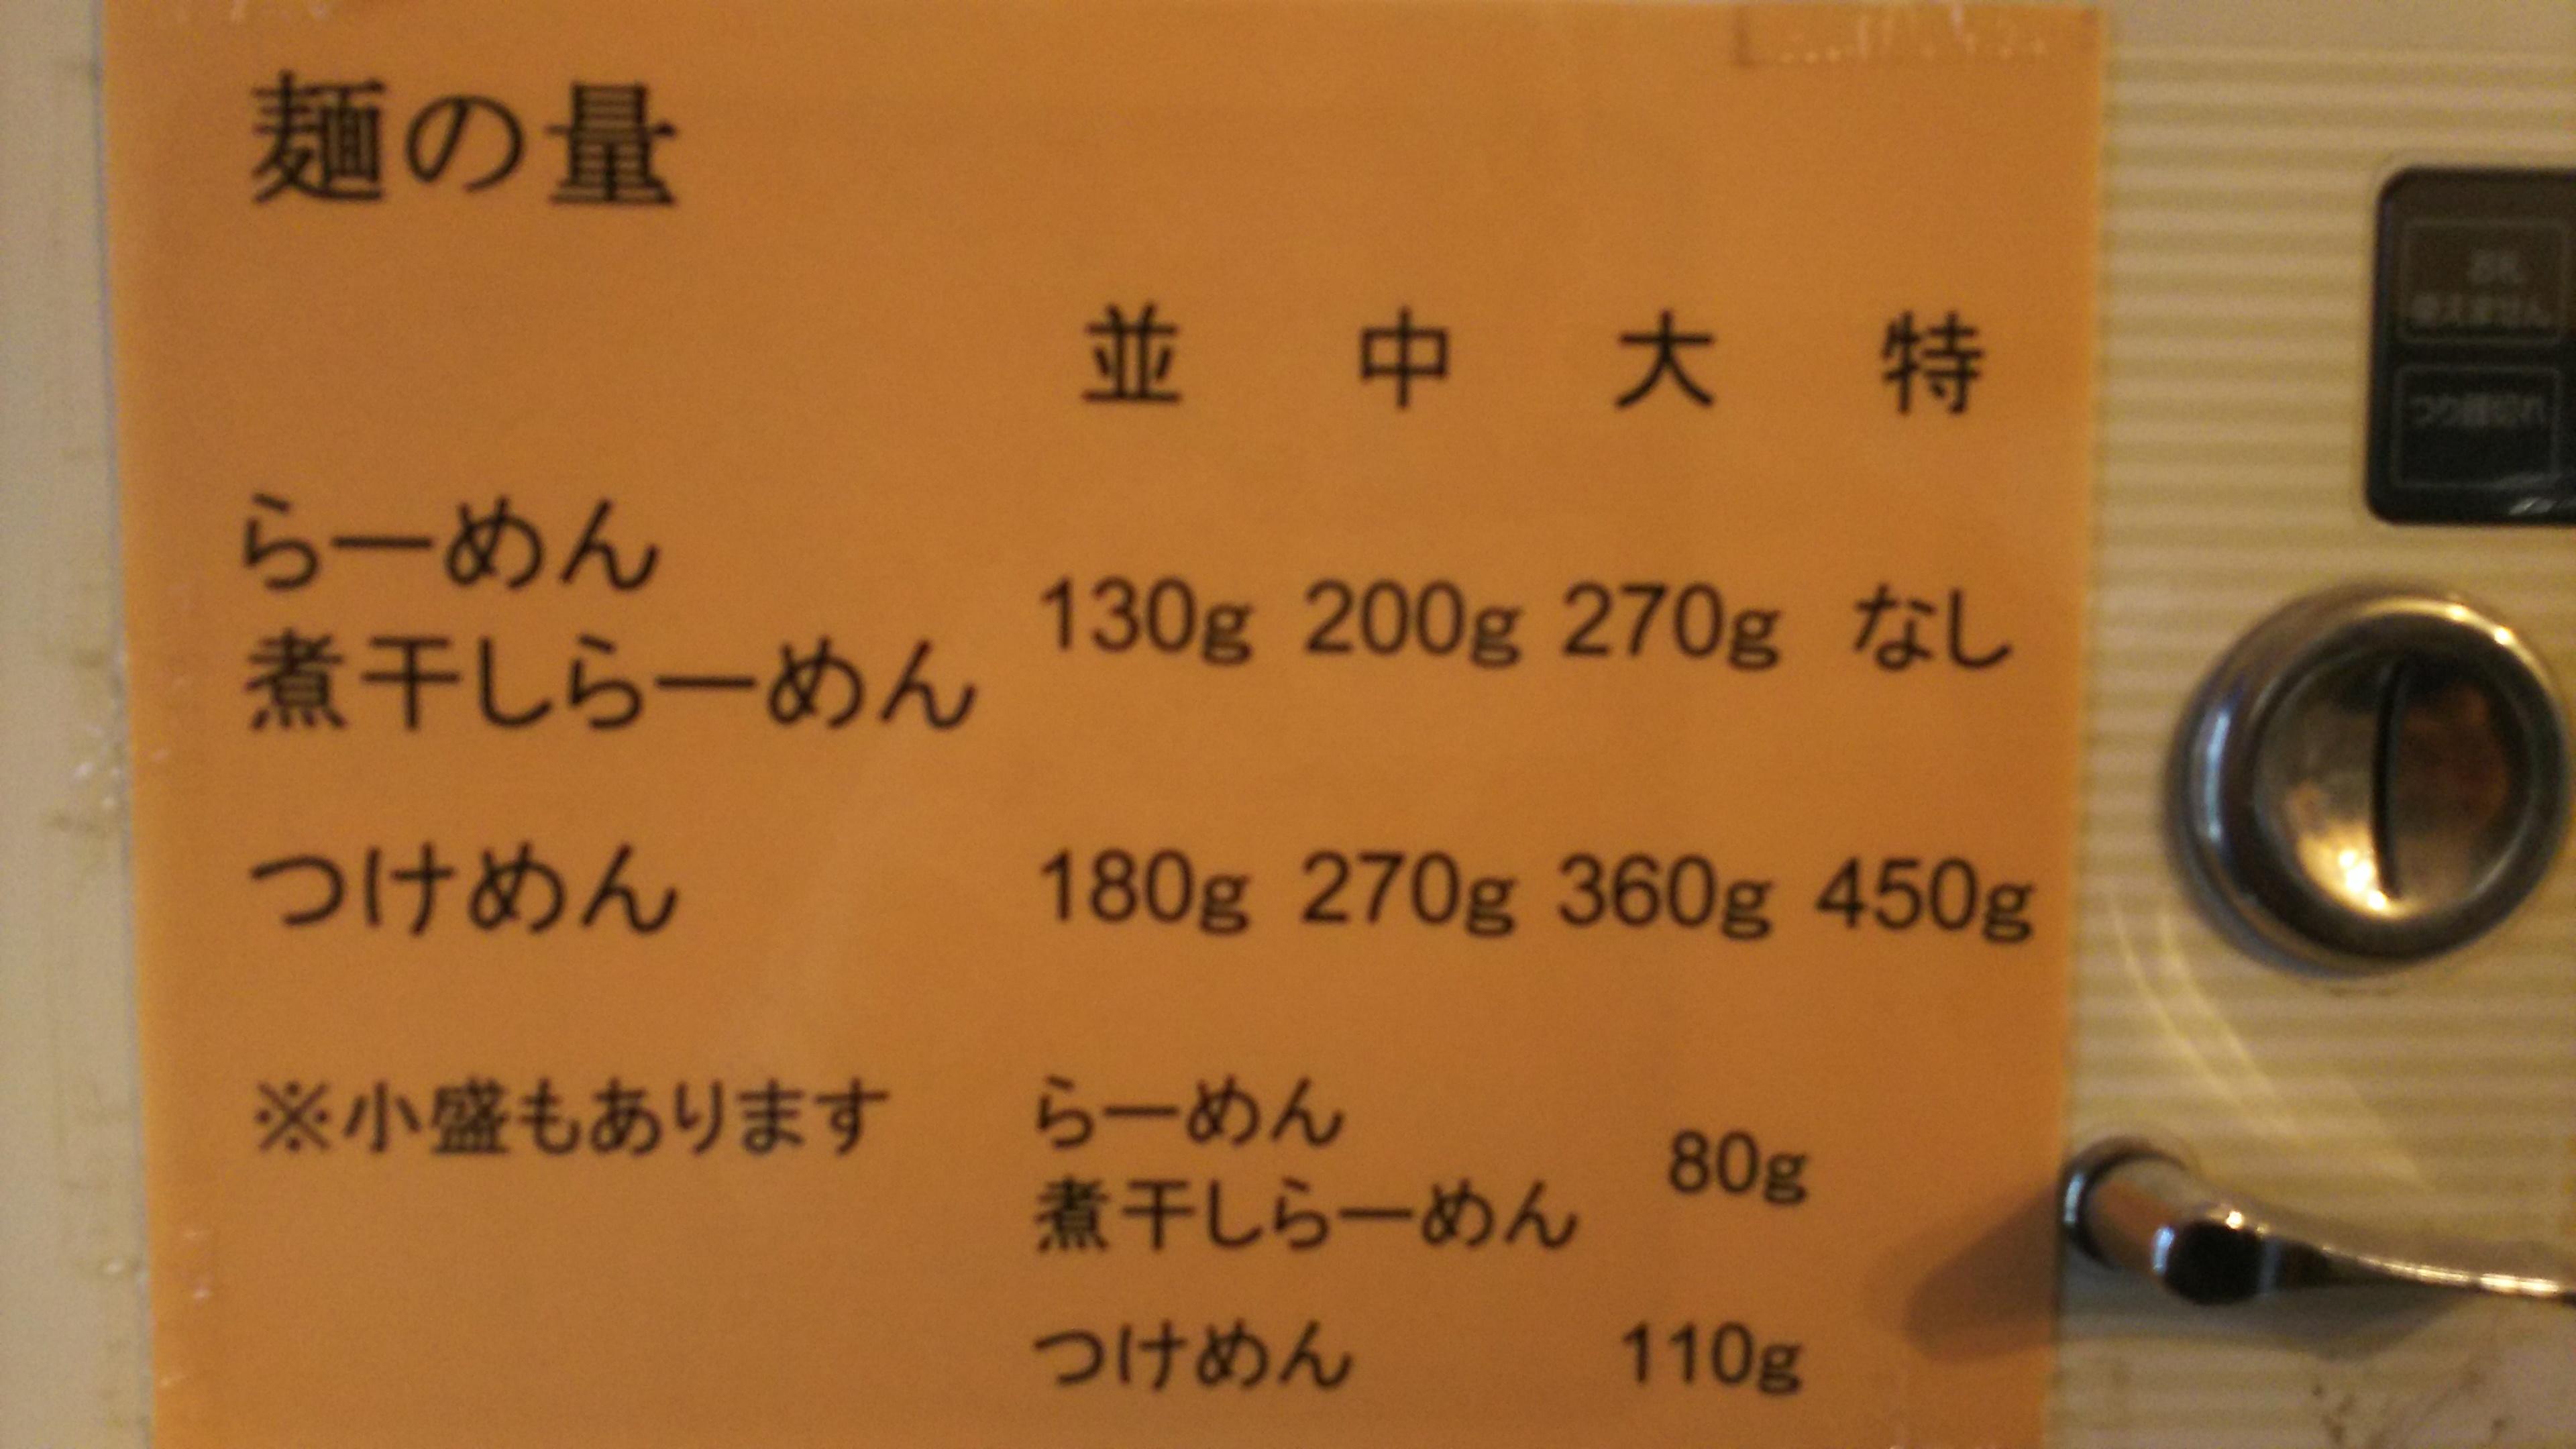 麺の量
並 中 大 特
らーめん
煮干しらーめん
130g 200g 270g なし
つけめん 180g 270g 360g 450g
※小盛もあります
らーめん
煮干しらーめん
80g
つけめん 110g